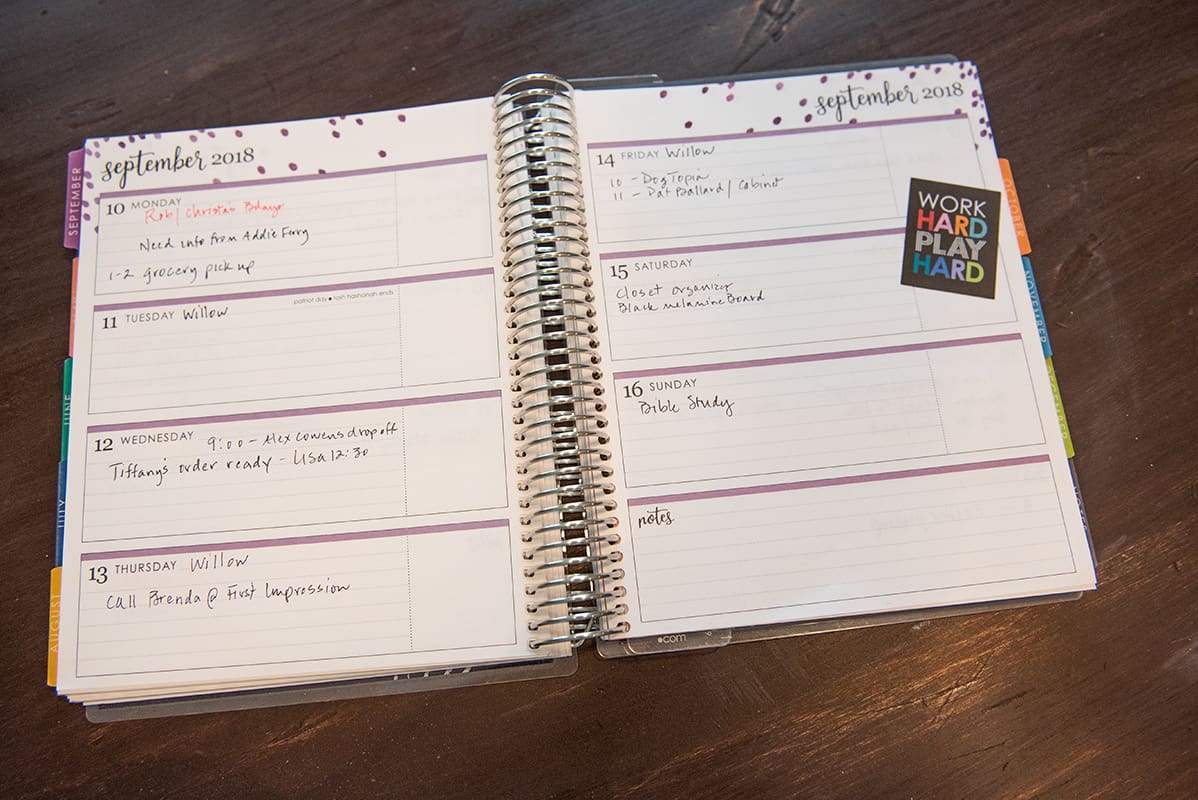 september 2018
10 MONDAY
Rob/Christa's Bdays
Need info from Addie Furry
1-2 grocery pick up
patriot day • rosh hashanah ends
11 TUESDAY Willow
12 WEDNESDAY 9:00 - Alex Cowens drop off
Tiffany's order ready - Lisa 12:30
13 THURSDAY Willow
Call Brenda @ First Impression
september 2018
14 FRIDAY Willow
10 - DogTopia
11 - Pat Ballard/Cabinet
15 SATURDAY
Closet organizing
Black melamine Board
16 SUNDAY
Bible Study
notes
WORK
HARD
PLAY
HARD
SEPTEMBER
JUNE
JULY
AUGUST
OCTOBER
NOVEMBER
.com